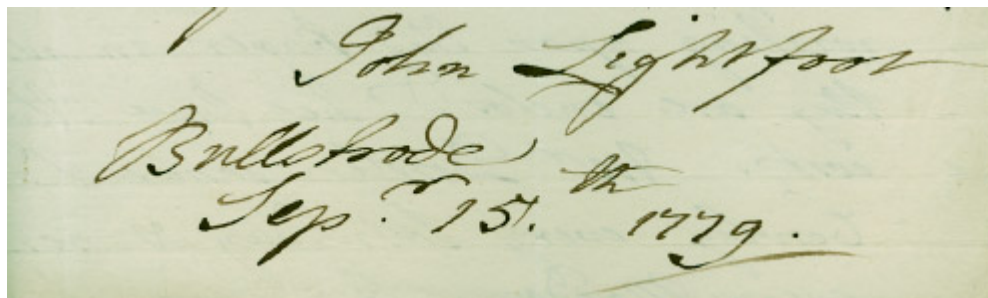 John Lightfoot
Bullstrode
Sep.r 15.th 1779.